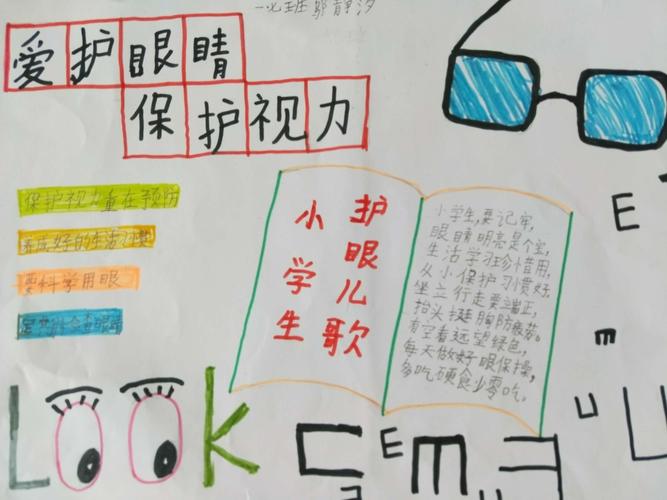 爱护眼睛
保护视力
保护视力重在预防
养成好的生活习惯
要科学用眼
小学生
护眼儿歌
小学生,要记牢,
眼睛明亮是个宝,
生活学习珍惜用,
从小保护习惯好.
坐立行走要端正,
抬头挺胸防疲劳.
有空看远望绿色,
每天做好眼保操,
多吃硬食少零吃.
LOOK
E
E